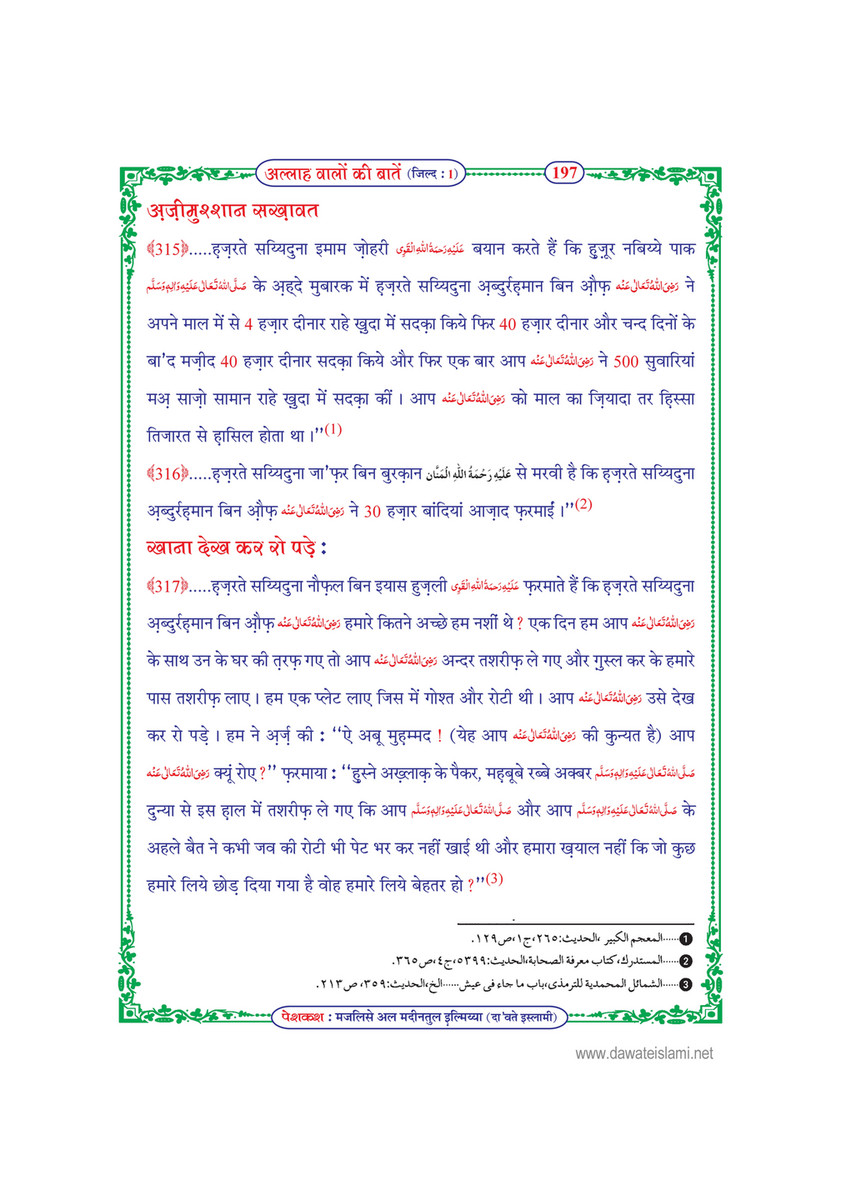 अल्लाह वालों की बातें (जिल्द : 1)
197
अ़ज़ीमुश्शान सख़ावत
﴾315﴿.....ह़ज़रते सय्यिदुना इमाम ज़ोहरी عَلَیْہِ رَحْمَۃُ اللّٰہِ الْقَوِی बयान करते हैं कि हु़ज़ूर नबिय्ये पाक
صَلَّی اللّٰہُ تَعَالٰی عَلَیْہِ وَاٰلِہٖ وَسَلَّم के अ़ह्दे मुबारक में ह़ज़रते सय्यिदुना अ़ब्दुर्रह़मान बिन औ़फ़ رَضِیَ اللّٰہُ تَعَالٰی عَنْہ ने
अपने माल में से 4 हज़ार दीनार राहे खुदा में सदक़ा किये फिर 40 हज़ार दीनार और चन्द दिनों के
बा'द मज़ीद 40 हज़ार दीनार सदक़ा किये और फिर एक बार आप رَضِیَ اللّٰہُ تَعَالٰی عَنْہ ने 500 सुवारियां
मअ़ साज़ो सामान राहे ख़ुदा में सदक़ा कीं । आप رَضِیَ اللّٰہُ تَعَالٰی عَنْہ को माल का ज़ियादा तर हि़स्सा
तिजारत से ह़ासिल होता था ।''(1)
﴾316﴿.....ह़ज़रते सय्यिदुना जा'फ़र बिन बुरक़ान عَلَیْہِ رَحْمَۃُ اللّٰہِ الْمَنَّان से मरवी है कि ह़ज़रते सय्यिदुना
अ़ब्दुर्रह़मान बिन औ़फ़ رَضِیَ اللّٰہُ تَعَالٰی عَنْہ ने 30 हज़ार बांदियां आज़ाद फ़रमाईं ।''(2)
खाना देख कर रो पड़े :
﴾317﴿.....ह़ज़रते सय्यिदुना नौफ़ल बिन इयास हुज़ली عَلَیْہِ رَحْمَۃُ اللّٰہِ الْقَوِی फ़रमाते हैं कि ह़ज़रते सय्यिदुना
अ़ब्दुर्रह़मान बिन औ़फ़ رَضِیَ اللّٰہُ تَعَالٰی عَنْہ हमारे कितने अच्छे हम नशीं थे ? एक दिन हम आप رَضِیَ اللّٰہُ تَعَالٰی عَنْہ
के साथ उन के घर की त़रफ़ गए तो आप رَضِیَ اللّٰہُ تَعَالٰی عَنْہ अन्दर तशरीफ़ ले गए और ग़ुस्ल कर के हमारे
पास तशरीफ़ लाए । हम एक प्लेट लाए जिस में गोश्त और रोटी थी । आप رَضِیَ اللّٰہُ تَعَالٰی عَنْہ उसे देख
कर रो पड़े । हम ने अ़र्ज़ की : ''ऐ अबू मुह़म्मद ! (येह आप رَضِیَ اللّٰہُ تَعَالٰی عَنْہ की कुन्यत है) आप
رَضِیَ اللّٰہُ تَعَالٰی عَنْہ क्यूं रोए ?'' फ़रमाया : ''हु़स्ने अख़्लाक़ के पैकर, मह़बूबे रब्बे अक्बर صَلَّی اللّٰہُ تَعَالٰی عَلَیْہِ وَاٰلِہٖ وَسَلَّم
दुन्या से इस ह़ाल में तशरीफ़ ले गए कि आप صَلَّی اللّٰہُ تَعَالٰی عَلَیْہِ وَاٰلِہٖ وَسَلَّم और आप صَلَّی اللّٰہُ تَعَالٰی عَلَیْہِ وَاٰلِہٖ وَسَلَّم के
अहले बैत ने कभी जव की रोटी भी पेट भर कर नहीं खाई थी और हमारा ख़याल नहीं कि जो कुछ
हमारे लिये छोड़ दिया गया है वोह हमारे लिये बेहतर हो ?''(3)
❶......المعجم الکبیر ،الحدیث:٢٦٥،ج١،ص١٢٩.
❷......المستدرك،کتاب معرفة الصحابة،الحدیث:٥٣٩٩،ج٤،ص٣٦٥.
❸......الشمائل المحمدیة للترمذی،باب ما جاء فی عیش......الخ،الحدیث:٣٥٩،ص٢١٣.
पेशकश : मजलिसे अल मदीनतुल इ़ल्मिय्या (दा'वते इस्लामी)
www.dawateislami.net